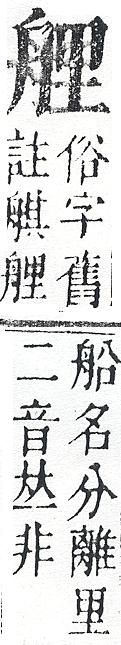 艃
俗字舊
註䑴艃
船名分離里
二音𠀤非